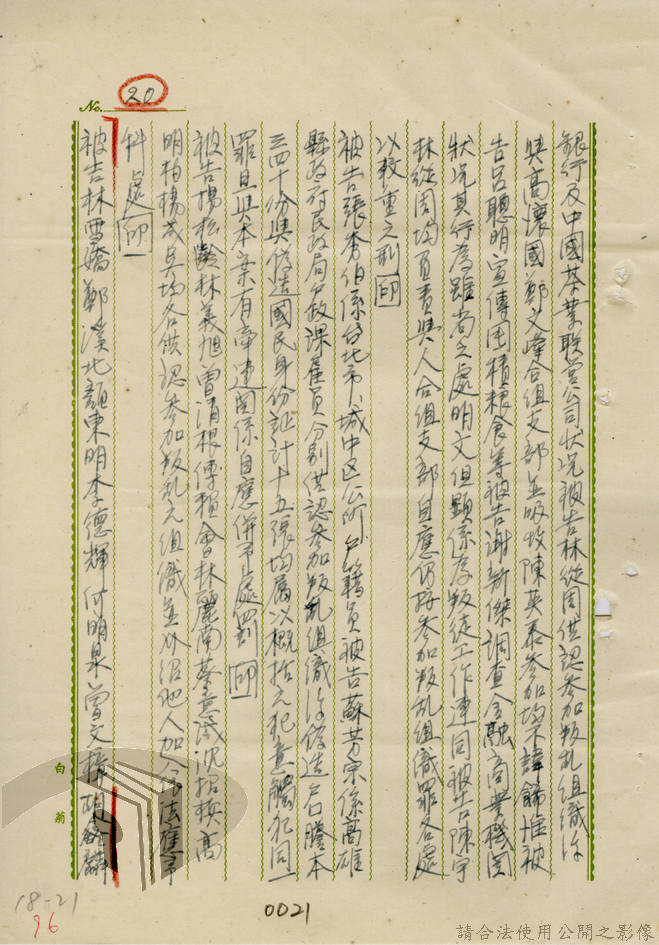 No. 20
銀行及中國茶業联营公司狀况被告林從周供認参加叛乱組織後
與高懷國鄭文峰合組支部並吸收陳英泰参加均不諱飾惟被
告呂聰明宣傳囤積粮食等被告謝新傑調查金融商業機関
狀况其行為雖尚乏處明文但顯係為叛徒工作連同被告陳宇
林從周均負責與人合組支部自應仍按参加叛乱組織罪各處
以較重之刑 印
被告張秀伯係台北市城中区公所户籍員被告蘇芳宗係高雄
縣政府民政局户政課雇員分别供認参加叛乱組織後偽造户籍謄本
三四十份與偽造國民身份証計十五張均属以概括之犯意觸犯同一
罪且與本案有牽連関係自應併予處罰 印
被告楊松齡林義旭曾清根傅賴會林麗南蔡意誠沈招换高
明柏楊茂吳场各供認参加叛乱之組織並介绍他人加入依法應予
科處 印
被告林雪嬌鄭溪北顏東明李德輝何明泉曾文振胡鑫麟
白菊
18-21
96
0021
請合法使用公開之影像